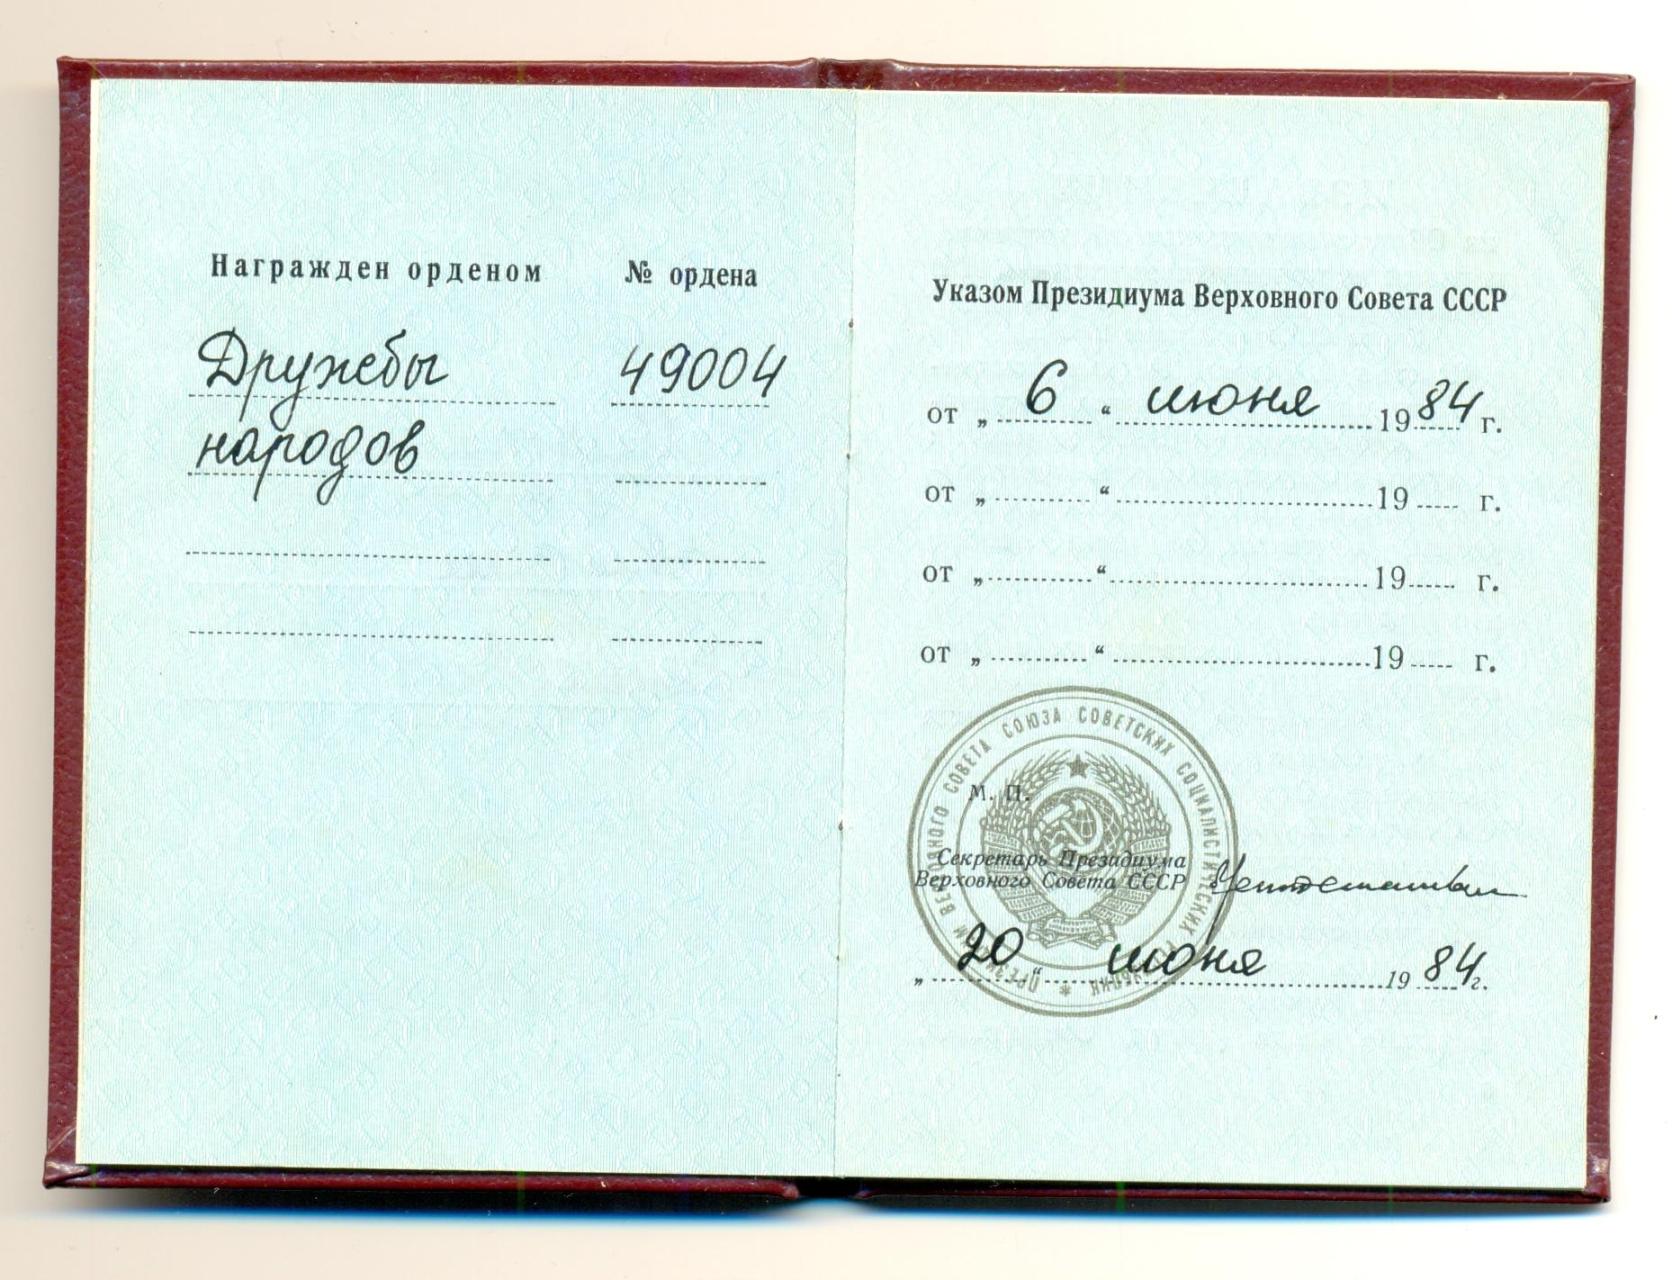 Награжден орденом
№ ордена
Дружбы
49004
народов
Указом Президиума Верховного Совета СССР
от „ 6 “ июня 1984 г.
от „ “ 19 г.
от „ “ 19 г.
от „ “ 19 г.
ПРЕЗИДИУМ ВЕРХОВНОГО СОВЕТА СОЮЗА СОВЕТСКИХ СОЦИАЛИСТИЧЕСКИХ РЕСПУБЛИК *
М. П.
Секретарь Президиума
Верховного Совета СССР
„ 20 “ июня 1984 г.